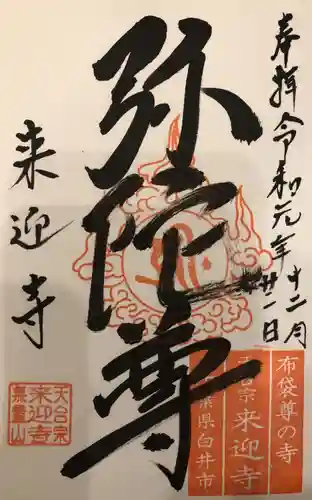 奉拝 令和元年十二月廿一日
弥陀尊
来迎寺
布袋尊の寺
天台宗 来迎寺
千葉県白井市
天台宗
来迎寺